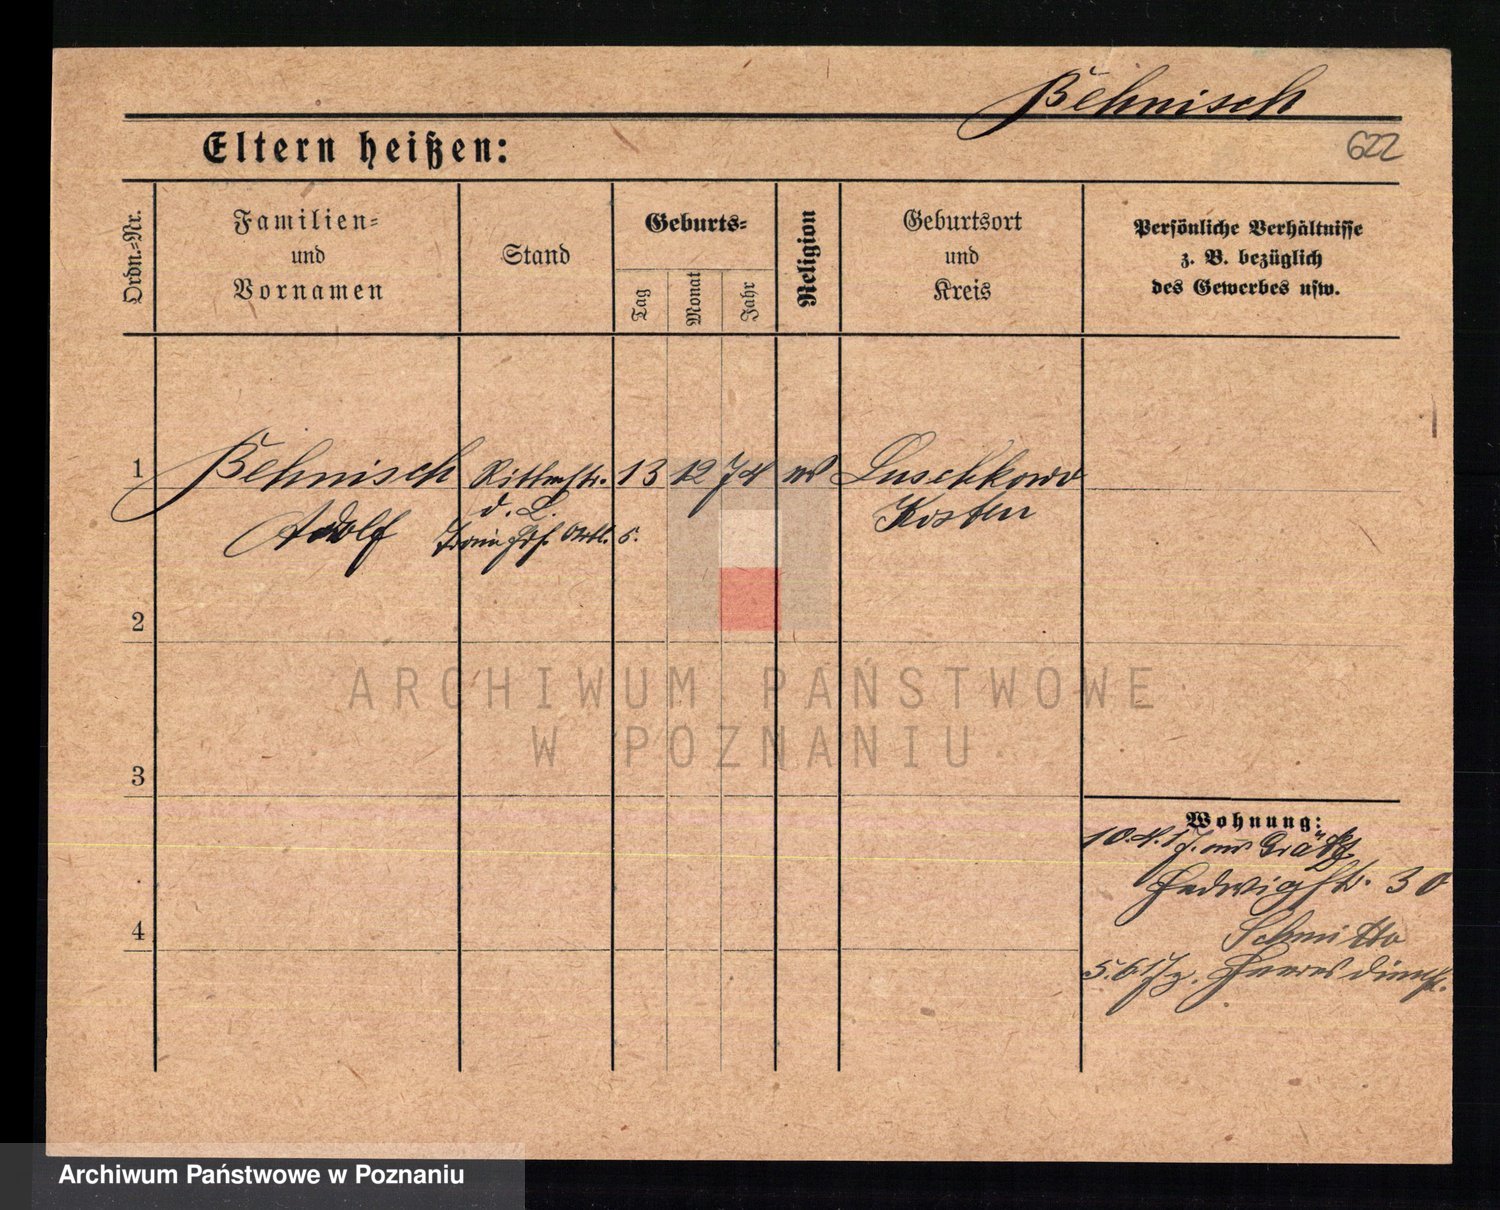 Behnisch
622
Eltern heißen:
Ordn.-Nr.
Familien-
und
Vornamen
Stand
Geburts-
Tag
Monat
Jahr
Religion
Geburtsort
und
Kreis
Persönliche Verhältnisse
z. B. bezüglich
des Gewerbes usw.
1
Behnisch
Adolf
Rittmstr.
d. L.
13
12
74
Luschkowo
Kosten
2
3
4
ARCHIWUM PAŃSTWOWE
W POZNANIU
Wohnung:
10.4.17. aus Grätz
Hedwigstr. 30
5.6.17 z. Heeresdienst.
Archiwum Państwowe w Poznaniu